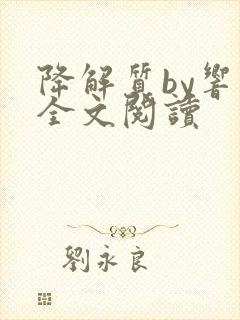 降解質by響
全文閱讀
劉永良